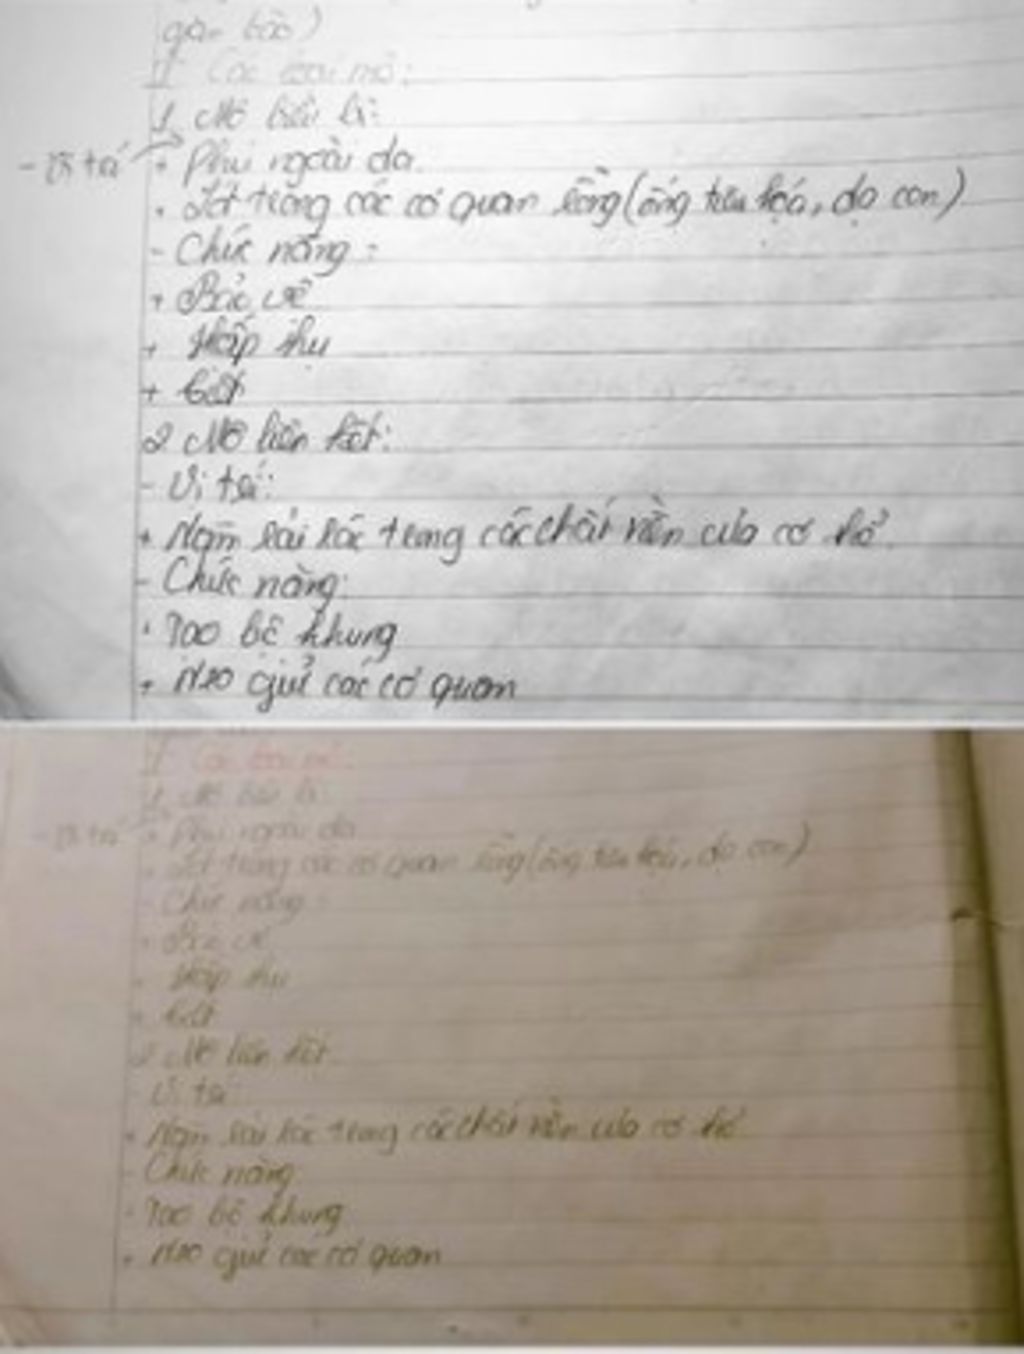 gian bào)
II Các loại mô:
1. Mô biểu bì:
- Vị trí + Phủ ngoài da
+ Lót trong các cơ quan rỗng (ống tiêu hóa, dạ con)
- Chức năng:
+ Bảo vệ
+ Hấp thụ
+ tiết
2 Mô liên kết:
- Vị trí:
+ Nằm rải rác trong các chất nền của cơ thể
- Chức năng:
+ Tạo bộ khung
+ Neo giữ các cơ quan
II Các loại mô:
1. Mô biểu bì:
- Vị trí + Phủ ngoài da
+ Lót trong các cơ quan rỗng (ống tiêu hóa, dạ con)
- Chức năng:
+ Bảo vệ
+ Hấp thụ
+ tiết
2 Mô liên kết
- Vị trí
+ Nằm rải rác trong các chất nền của cơ thể
- Chức năng
+ Tạo bộ khung
+ Neo giữ các cơ quan